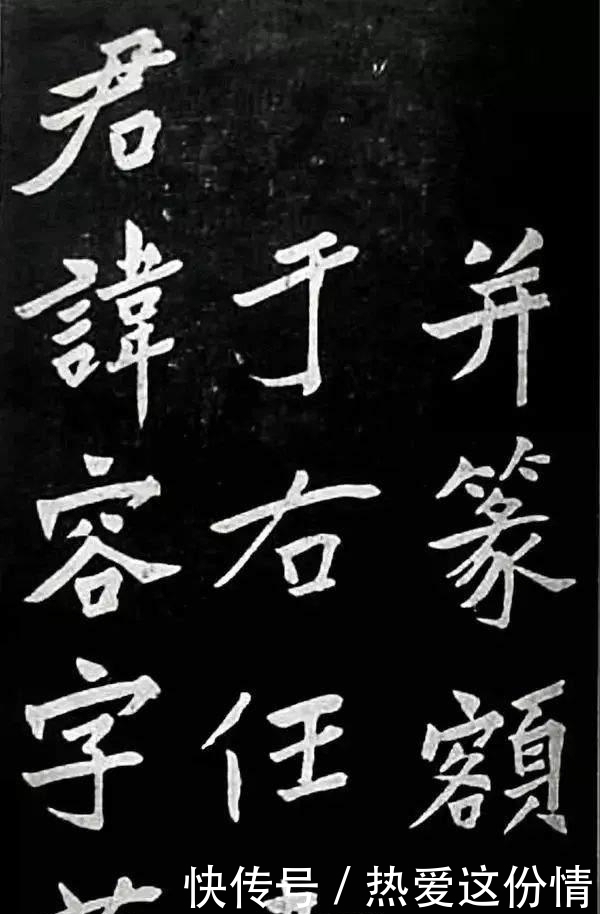 并篆額
于右任
君諱容字
快传号/热爱这份情